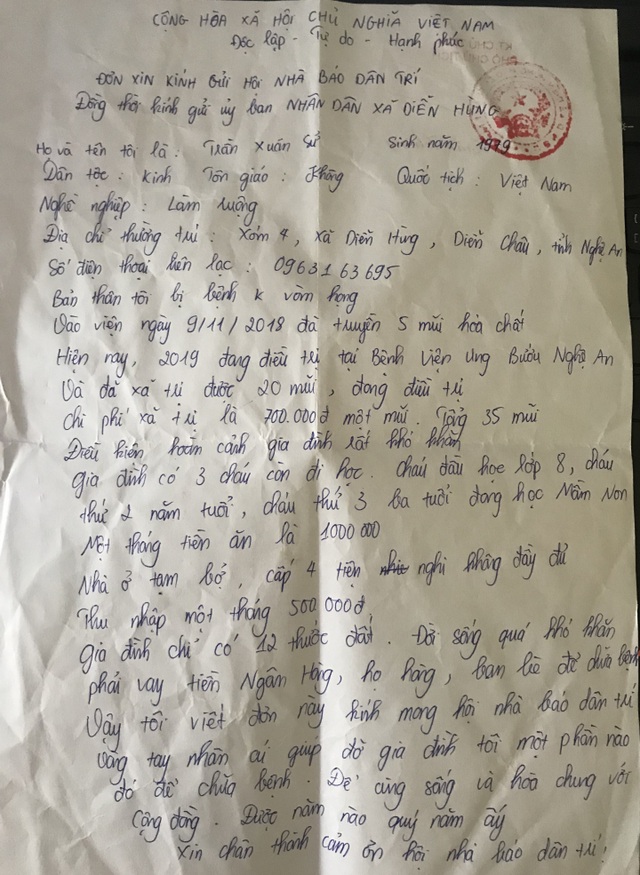 CỘNG HÒA XÃ HỘI CHỦ NGHĨA VIỆT NAM
Độc lập - Tự do - Hạnh phúc
ĐƠN XIN KÍNH GỬI HỘI NHÀ BÁO DÂN TRÍ
Đồng thời kính gửi ủy ban NHÂN DÂN XÃ DIỄN HÙNG
Họ và tên tôi là : Trần Xuân Sử Sinh năm 1979
Dân tộc : Kinh Tôn giáo : Không Quốc tịch : Việt Nam
Nghề nghiệp : Làm ruộng
Địa chỉ thường trú : Xóm 4, xã Diễn Hùng, Diễn Châu, tỉnh Nghệ An
Số điện thoại liên lạc : 09631 63 695
Bản thân tôi bị bệnh k vòm họng
Vào viện ngày 9/11/2018 đã truyền 5 mũi hóa chất
Hiện nay, 2019 đang điều trị tại Bệnh Viện Ung Bướu Nghệ An
Và đã xã trị được 20 mũi, đang điều trị
Chi phí xã trị là 700.000đ một mũi. Tổng 35 mũi
Điều kiện hoàn cảnh gia đình rất khó khăn
Gia đình có 3 cháu còn đi học. cháu đầu học lớp 8, cháu
thứ 2 năm tuổi, cháu thứ 3 ba tuổi đang học Mầm Non
Một tháng tiền ăn là 1000 000
Nhà ở tạm bợ, cấp 4 tiện nghi không đầy đủ
Thu nhập một tháng 500.000đ
Gia đình chỉ có 12 thước đất. Đời sống quá khó khăn
phải vay tiền Ngân Hàng, họ hàng, bạn bè để chữa bệnh
Vậy tôi viết đơn này kính mong hội nhà báo dân trí
Vòng tay nhân ái giúp đỡ gia đình tôi một phần nào
đó để chữa bệnh. Để cùng sống và hòa chung với
Cộng đồng. Được năm nào quý năm ấy
Xin chân thành cảm ơn hội nhà báo dân trí!